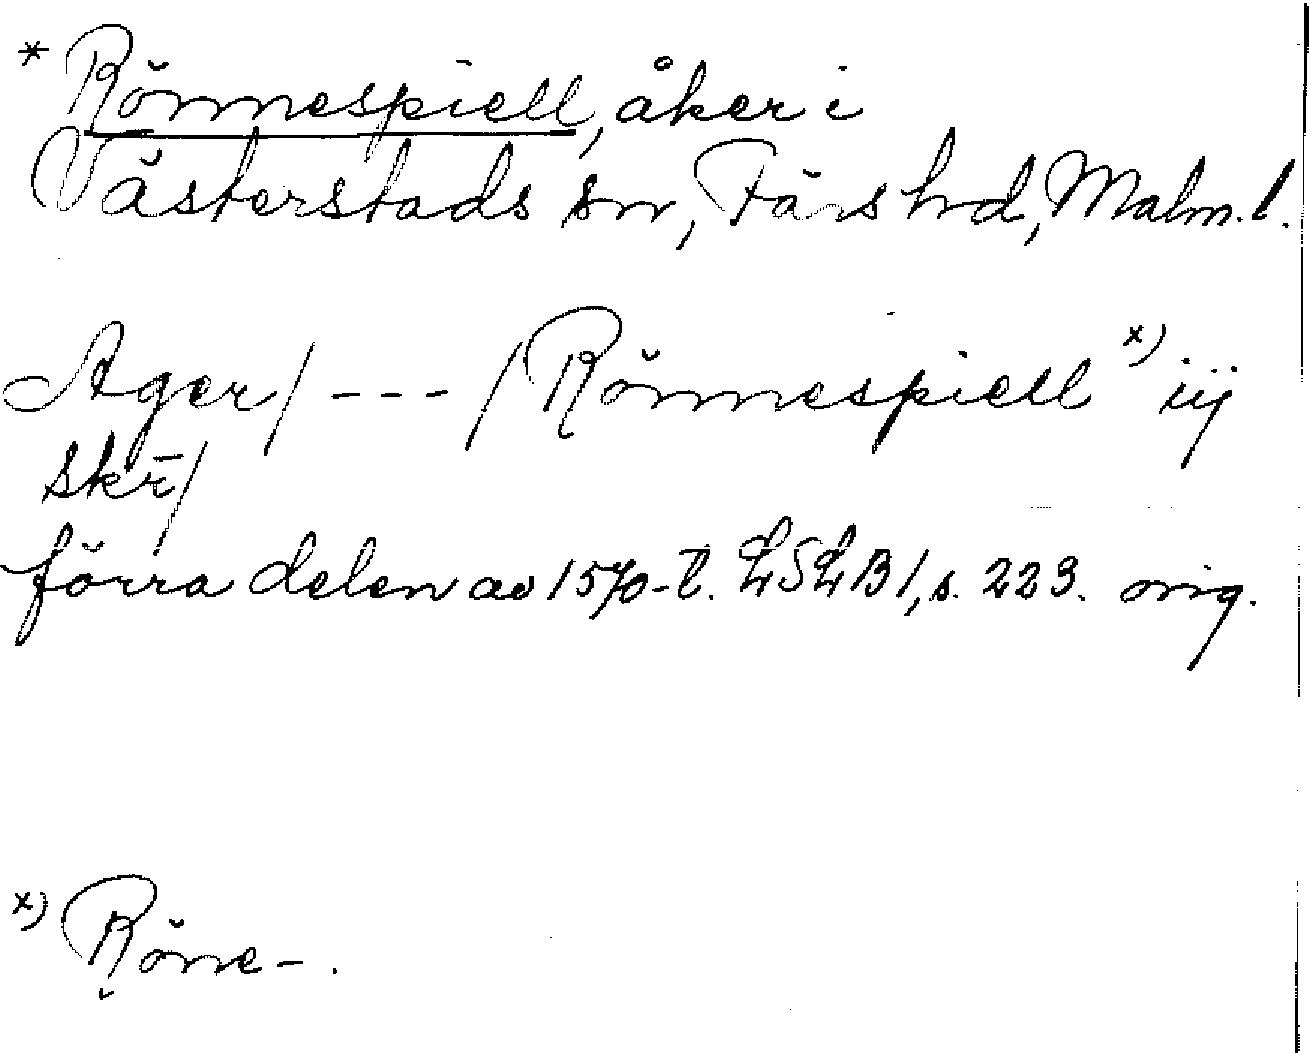 * Rönnespiell, åker i
Västerstads sn, Färs hd, Malm. l.
Ager / - - - / Rönnespiell x) iij
skr̄/
förra delen av 1570-t. LSLB 1, s. 223. orig.
x) Röne - .